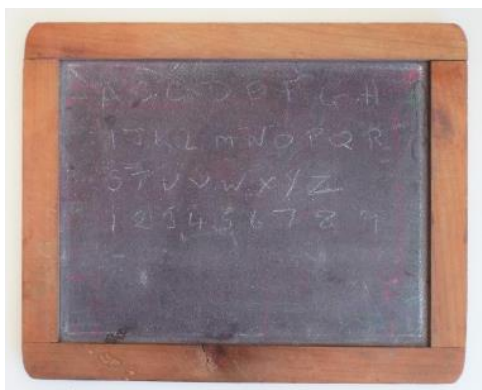 A B C D E F G H
I J K L M N O P Q R
S T U V W X Y Z
1 2 3 4 5 6 7 8 9